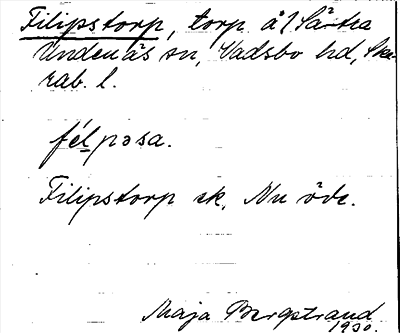 Filipstorp, torp å Sätra
Undenäs sn, Vadsbo hd, Ska-
rab. l.
fél pəsa.
Filipstorp sk. Nu öde.
Maja Bergstrand
1930.